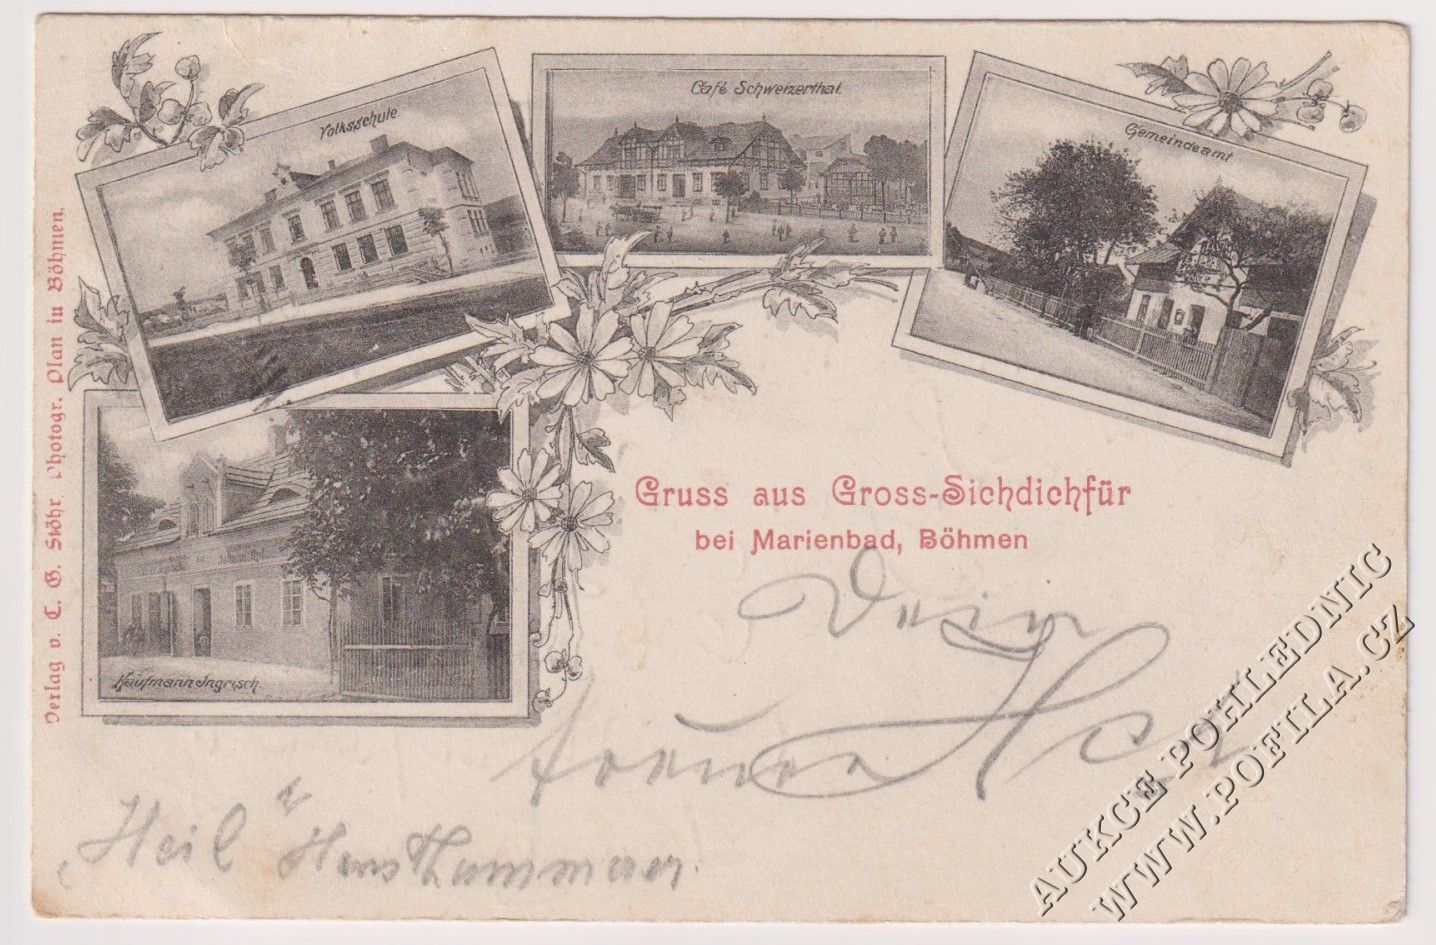 Volksschule
Café Schweizerthal.
Gemeindeamt
Kaufmann Ingrisch.
Verlag v. C. G. Stöhr, Photogr. Plan in Böhmen.
Gruss aus Gross-Sichdichfür
bei Marienbad, Böhmen
Dein
„Heil“
AUKCE POHLEDNIC
WWW.POFILA.CZ